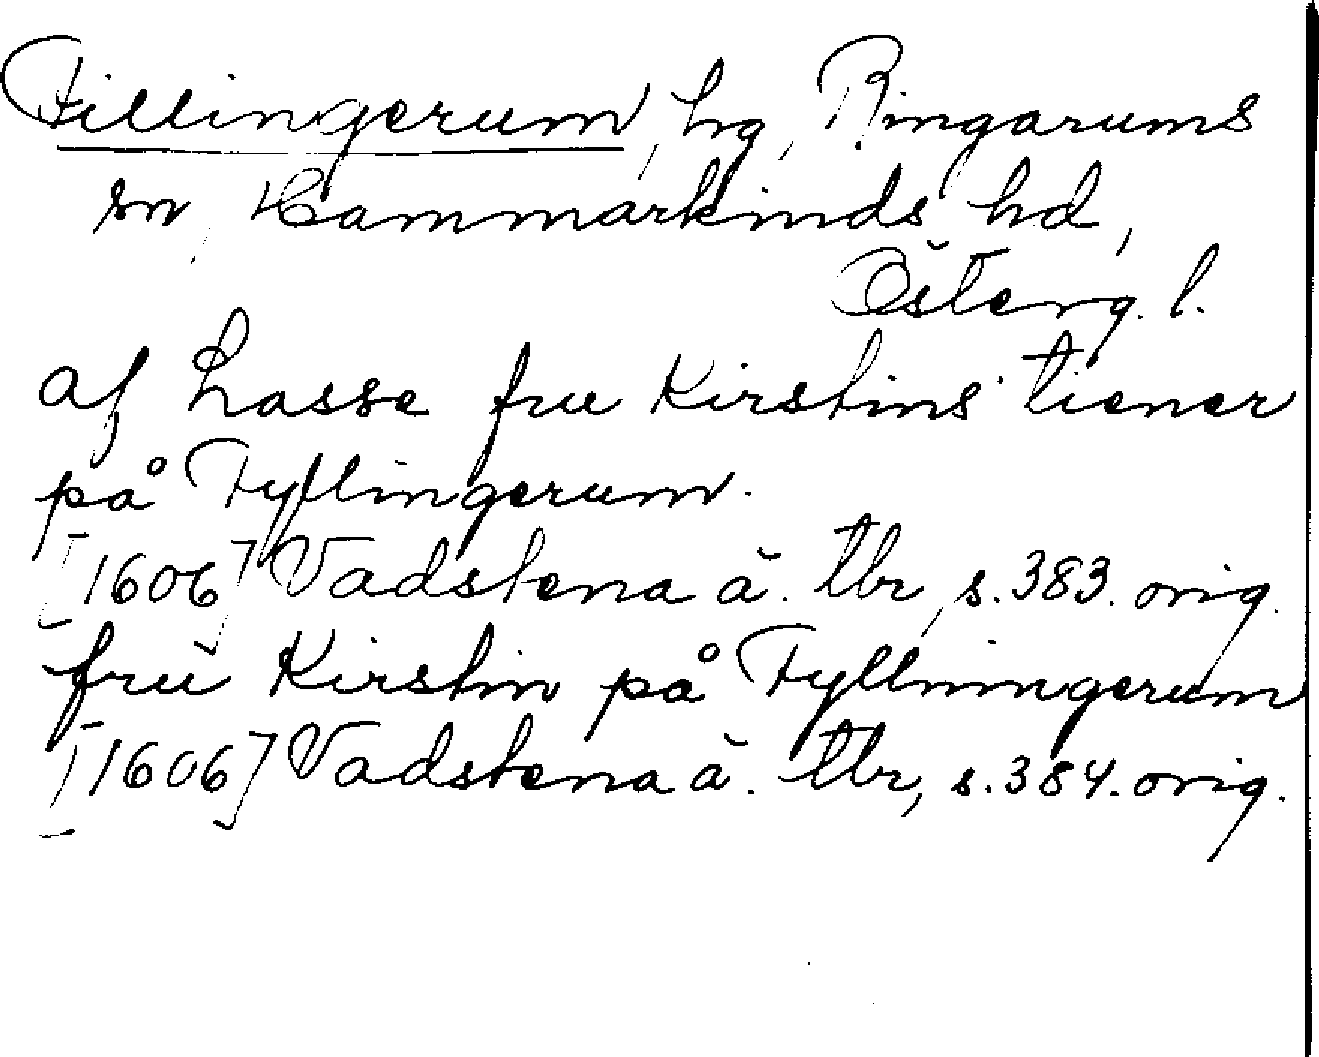 Fillingerum, hg, Ringarums
sn, Hammarkinds hd,
Österg. l.
af Lasse frue Kirstins tiener
på Fyllingerum.
[1606] Vadstena ä. tbr, s. 383. orig.
frü Kirstin på Fyllningerum
[1606] Vadstena ä. tbr, s. 384. orig.